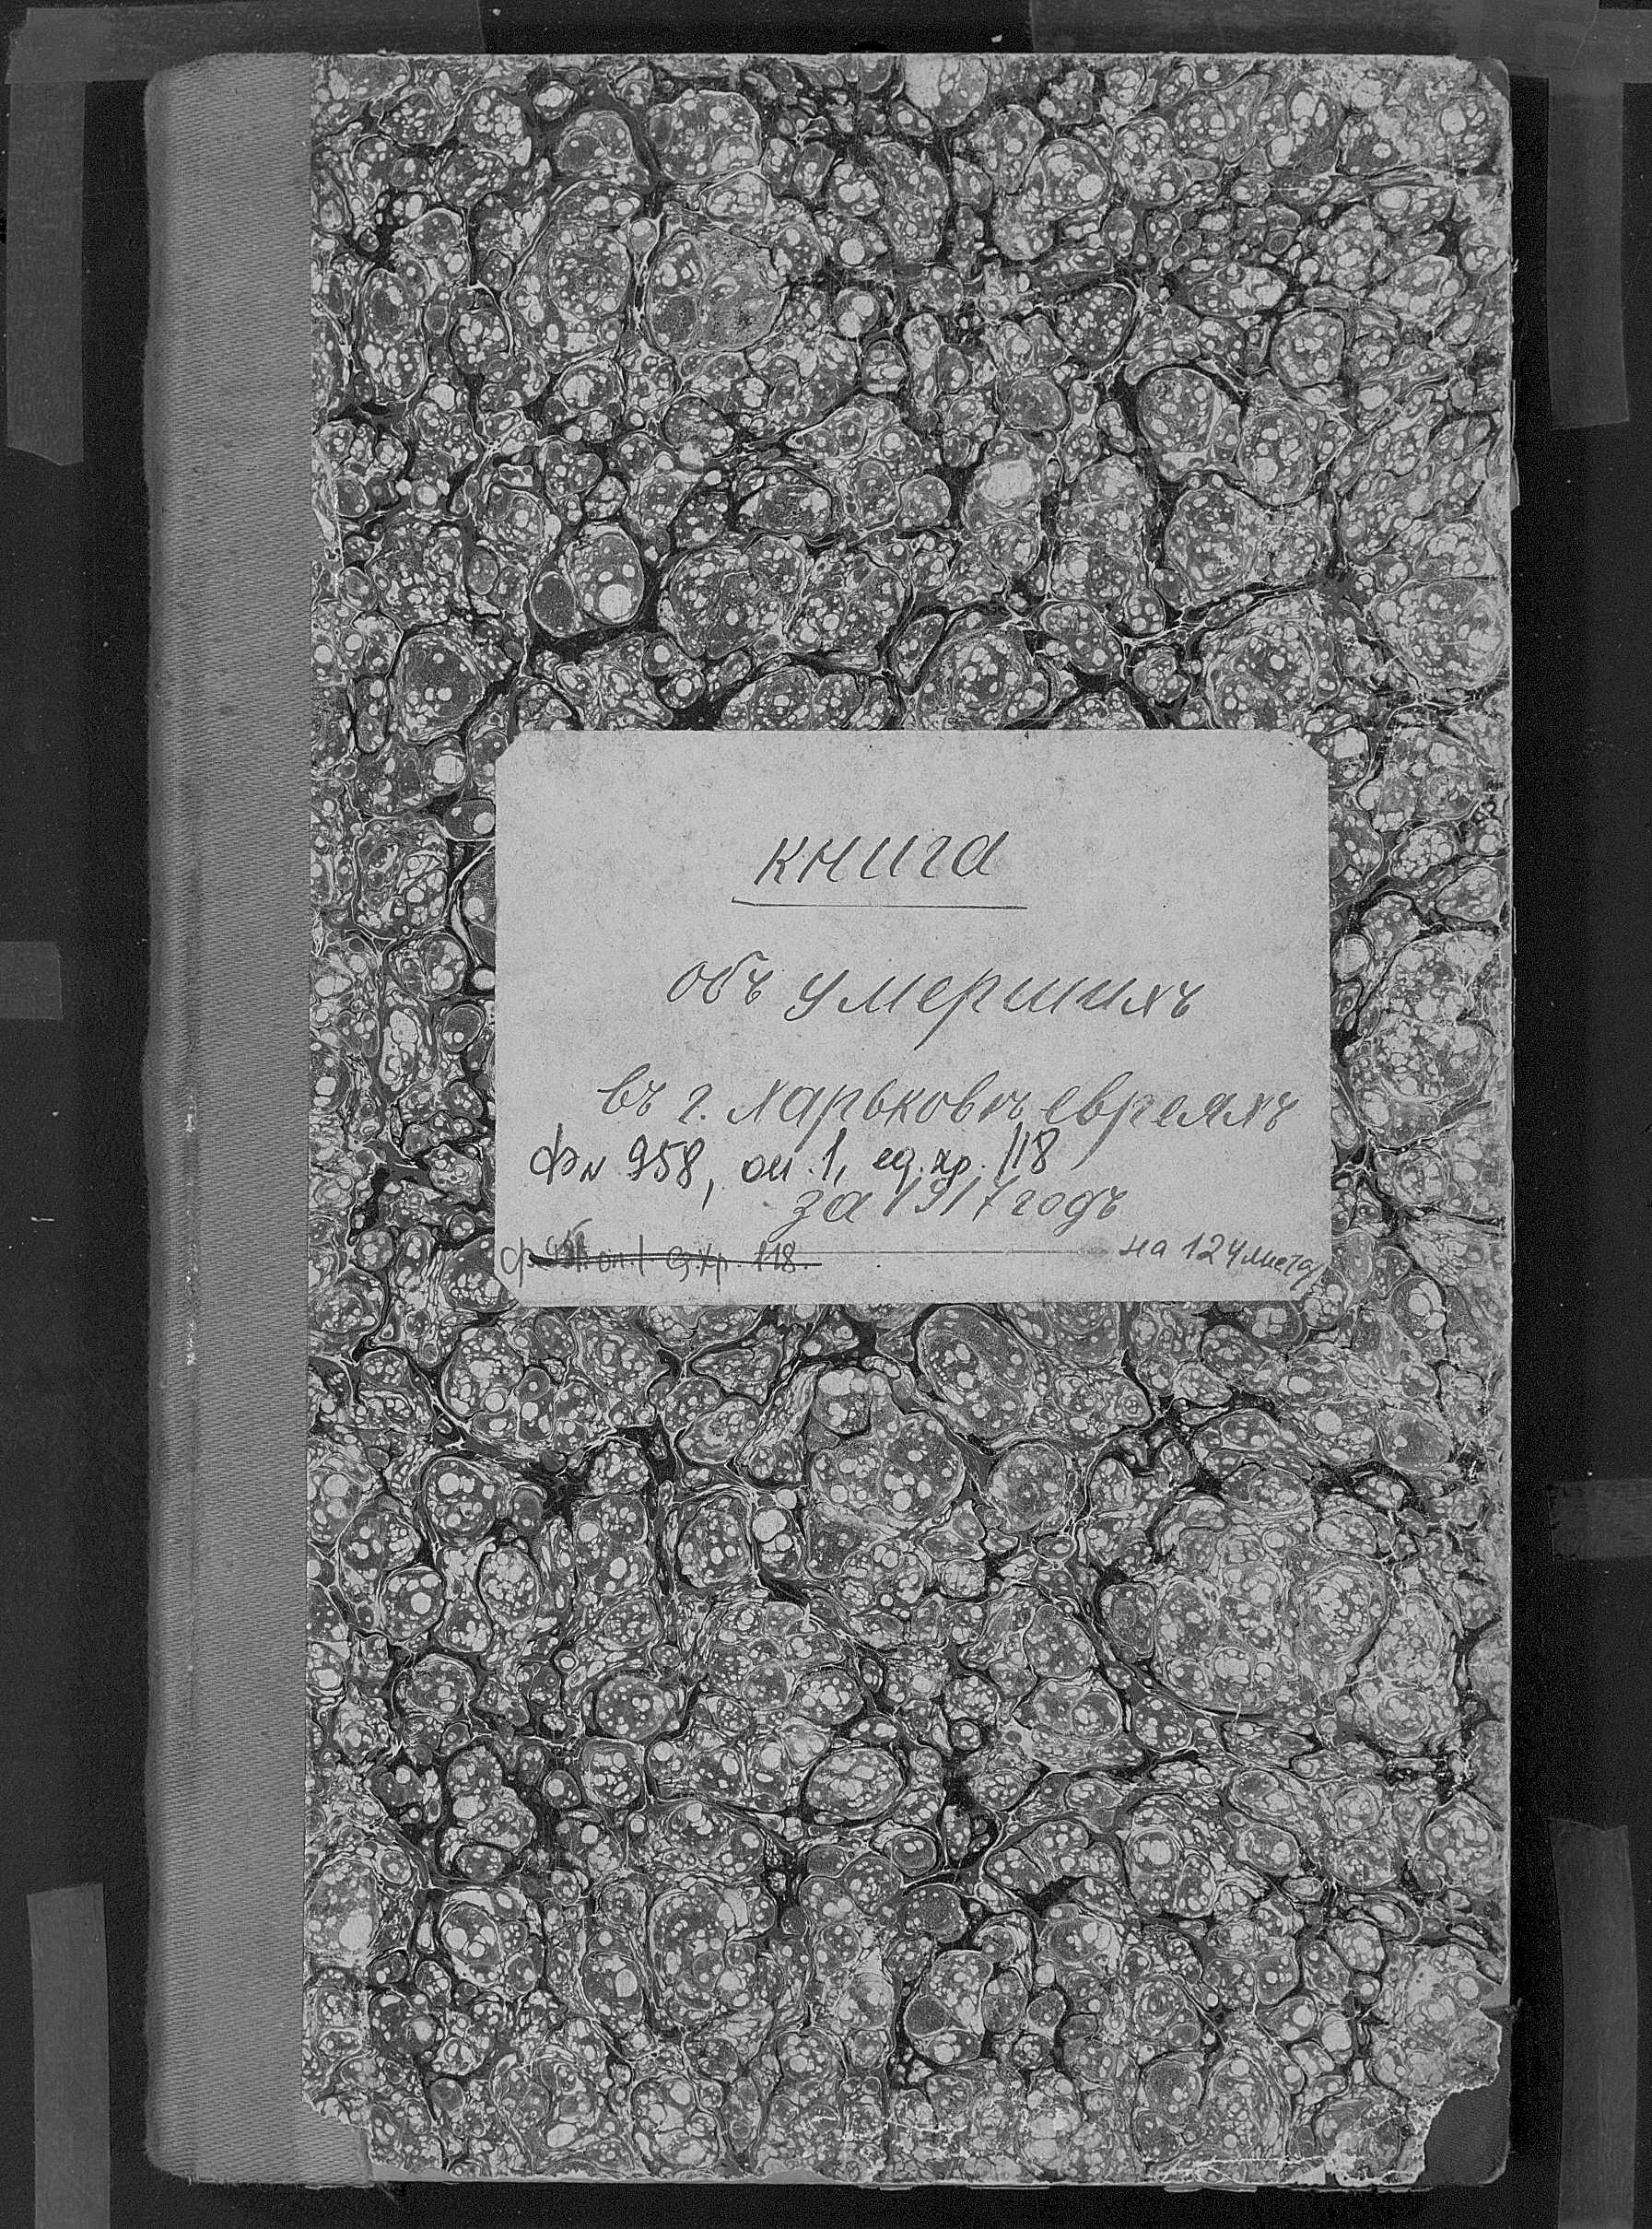 книга
объ умершихъ
въ г. Харьковѣ евреяхъ
Ф № 958, оп. 1, ед. хр. 118
за 1917 годъ
на 124 листа
ф. оп. 1 ед. хр. 118.